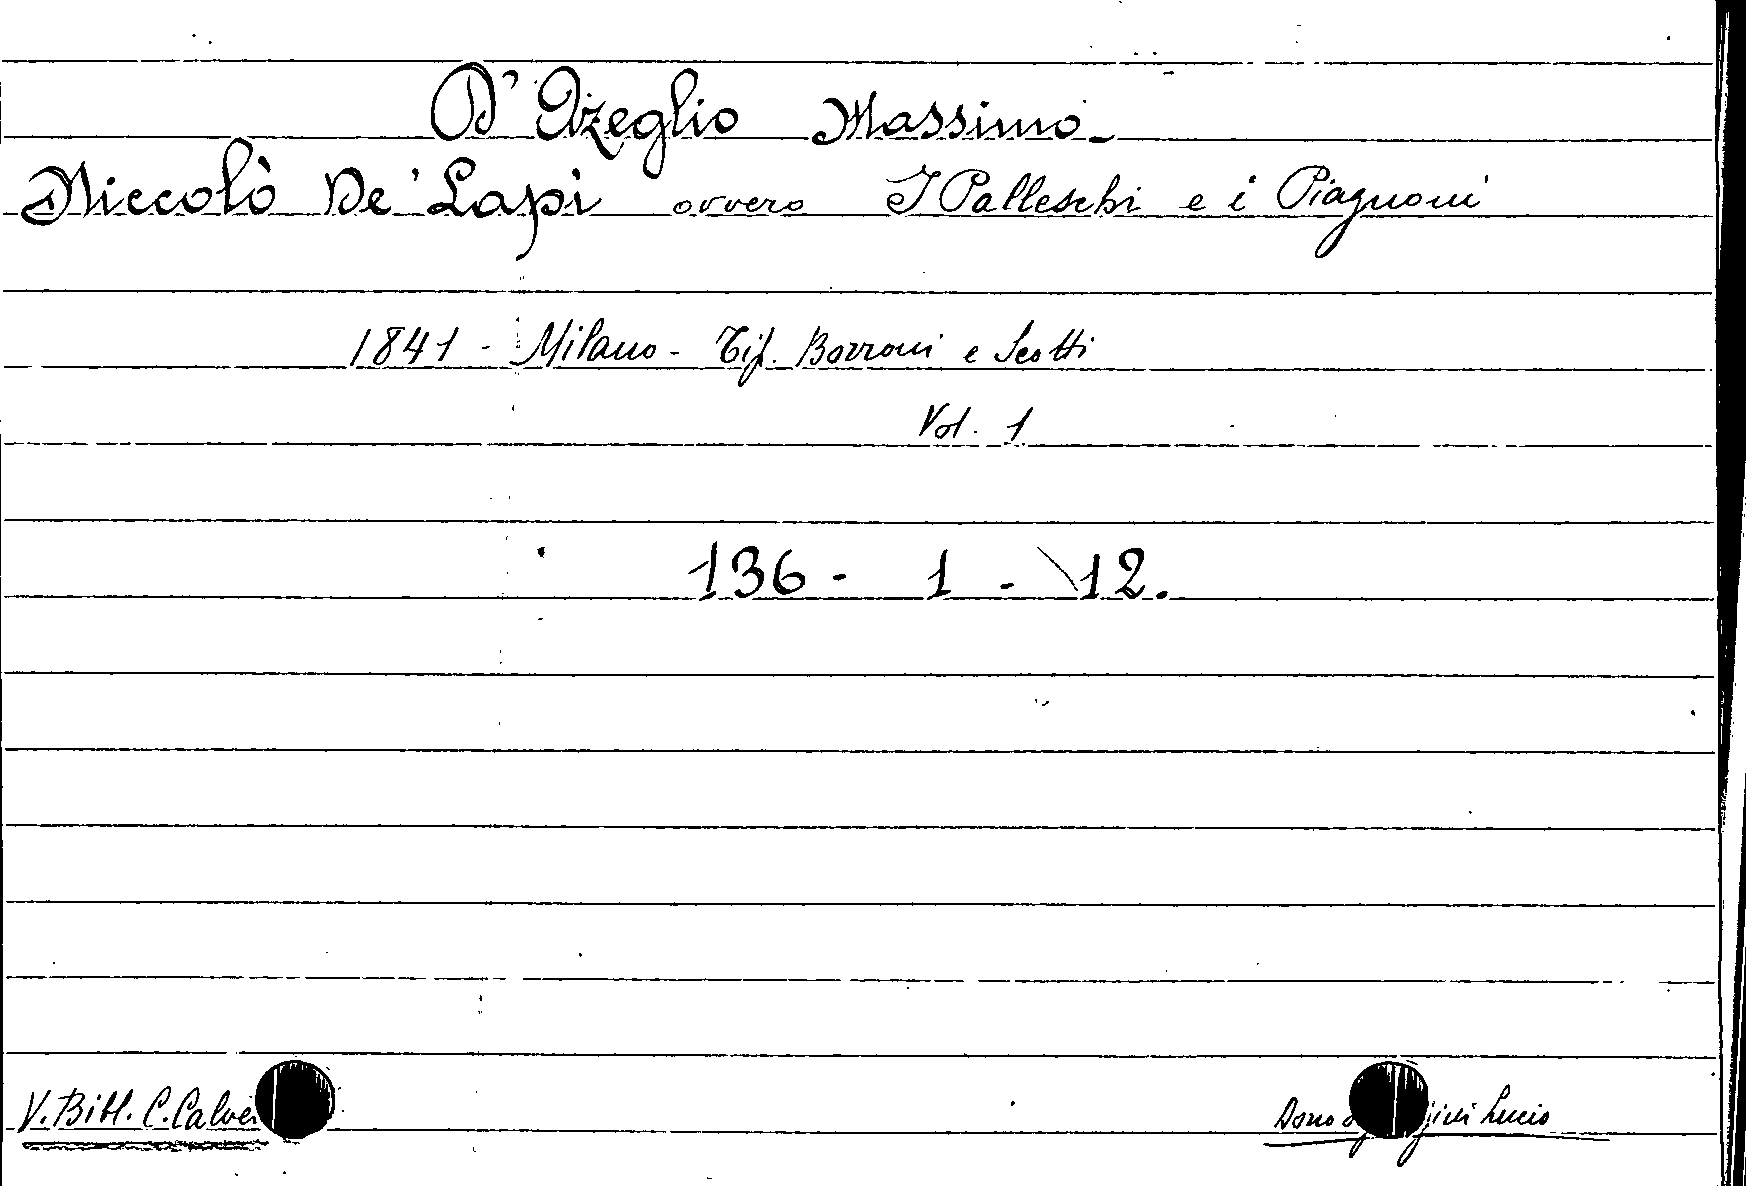 D'Azeglio Massimo-
Niccolò De' Lapi ovvero I Palleschi e i Piagnoni
1841 - Milano - Tip. Borroni e Scotti
Vol. 1
136 - 1 - 12.
V. Bibl. C. Calvi
Dono Lucio